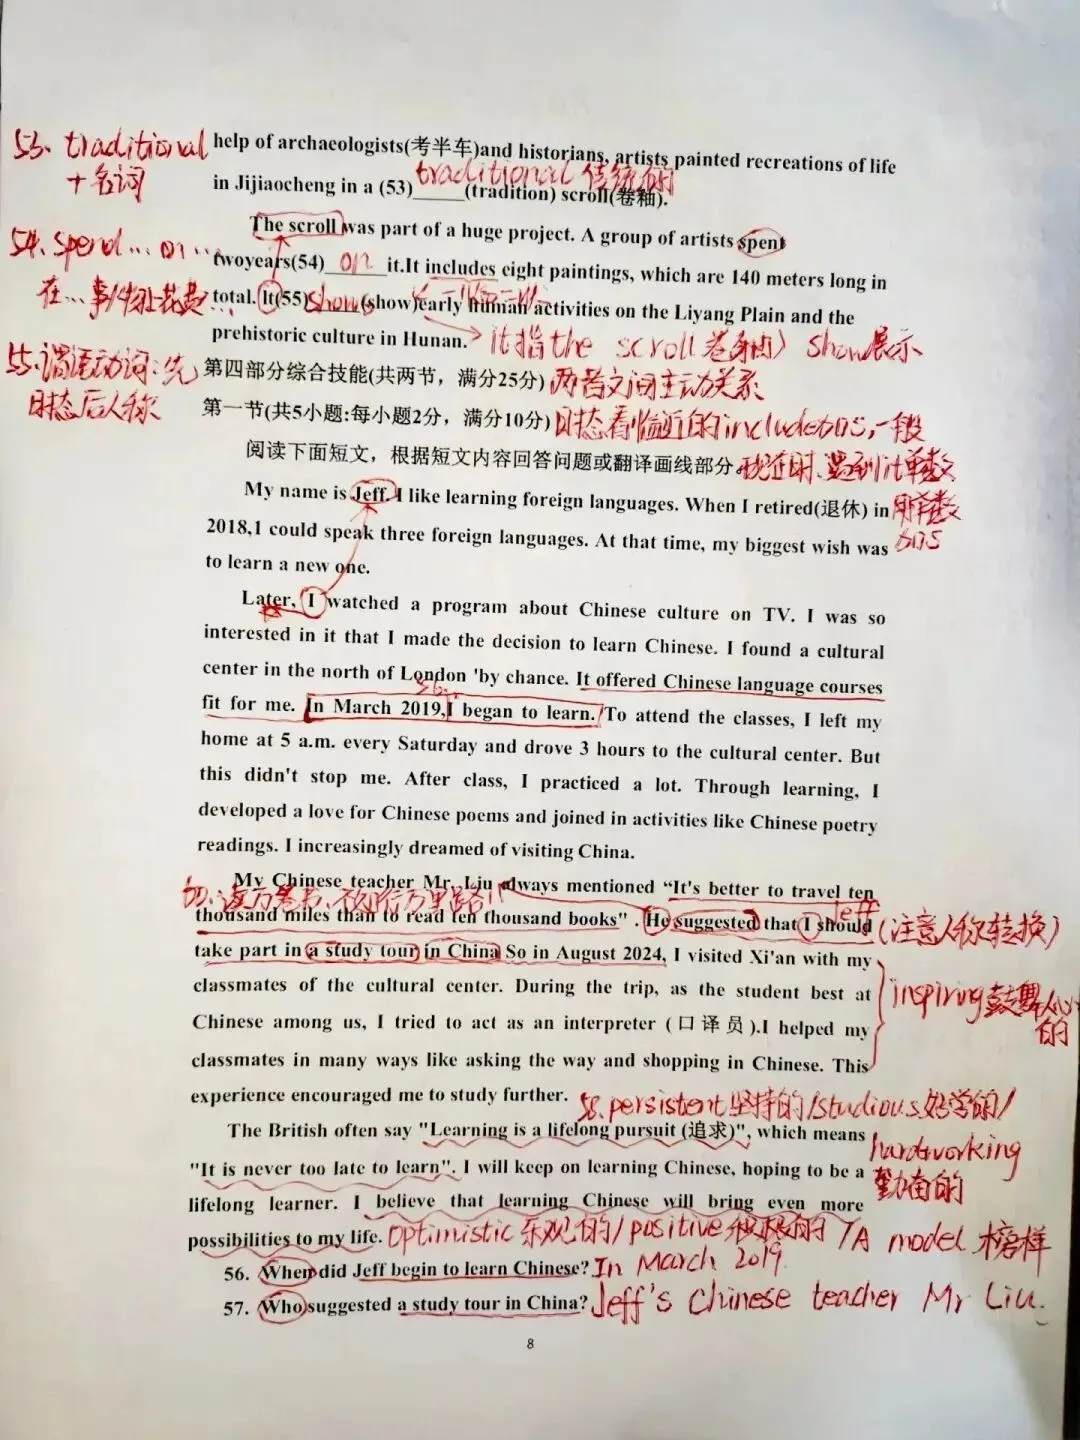 53. traditional
+名词
help of archaeologists(考半车)and historians, artists painted recreations of life
traditional 传统的
in Jijiaocheng in a (53)______(tradition) scroll(卷釉).
The scroll was part of a huge project. A group of artists spent
54. spend... on ...
twoyears(54)______it.It includes eight paintings, which are 140 meters long in
on
total. It(55)______(show)early human activities on the Liyang Plain and the
shows
prehistoric culture in Hunan.
it指the scroll 卷轴 show展示
55.谓语动词:先
时态后人称
第四部分综合技能(共两节，满分25分)
第一节(共5小题:每小题2分，满分10分)
时态看临近的includes, 一般
阅读下面短文，根据短文内容回答问题或翻译画线部分。
现在时、
My name is Jeff. I like learning foreign languages. When I retired(退休) in
2018,1 could speak three foreign languages. At that time, my biggest wish was
to learn a new one.
Later, I watched a program about Chinese culture on TV. I was so
interested in it that I made the decision to learn Chinese. I found a cultural
center in the north of London 'by chance. It offered Chinese language courses
56.
fit for me. In March 2019,I began to learn. To attend the classes, I left my
home at 5 a.m. every Saturday and drove 3 hours to the cultural center. But
this didn't stop me. After class, I practiced a lot. Through learning, I
developed a love for Chinese poems and joined in activities like Chinese poetry
readings. I increasingly dreamed of visiting China.
My Chinese teacher Mr. Liu always mentioned “It's better to travel ten
60.读万卷书，不如行万里路
thousand miles than to read ten thousand books" . He suggested that I should
Jeff
(注意人称转换)
take part in a study tour in China So in August 2024, I visited Xi'an with my
classmates of the cultural center. During the trip, as the student best at
inspiring鼓舞人心
的
Chinese among us, I tried to act as an interpreter (口译员).I helped my
classmates in many ways like asking the way and shopping in Chinese. This
experience encouraged me to study further.
58. persistent坚持的/studious好学的/
hardworking
勤奋的
The British often say "Learning is a lifelong pursuit (追求)", which means
"It is never too late to learn". I will keep on learning Chinese, hoping to be a
lifelong learner. I believe that learning Chinese will bring even more
possibilities to my life.
optimistic 乐观的/positive积极的/A model 榜样
56. When did Jeff begin to learn Chinese?
In March 2019.
57. Who suggested a study tour in China?
Jeff's Chinese teacher Mr Liu.
8